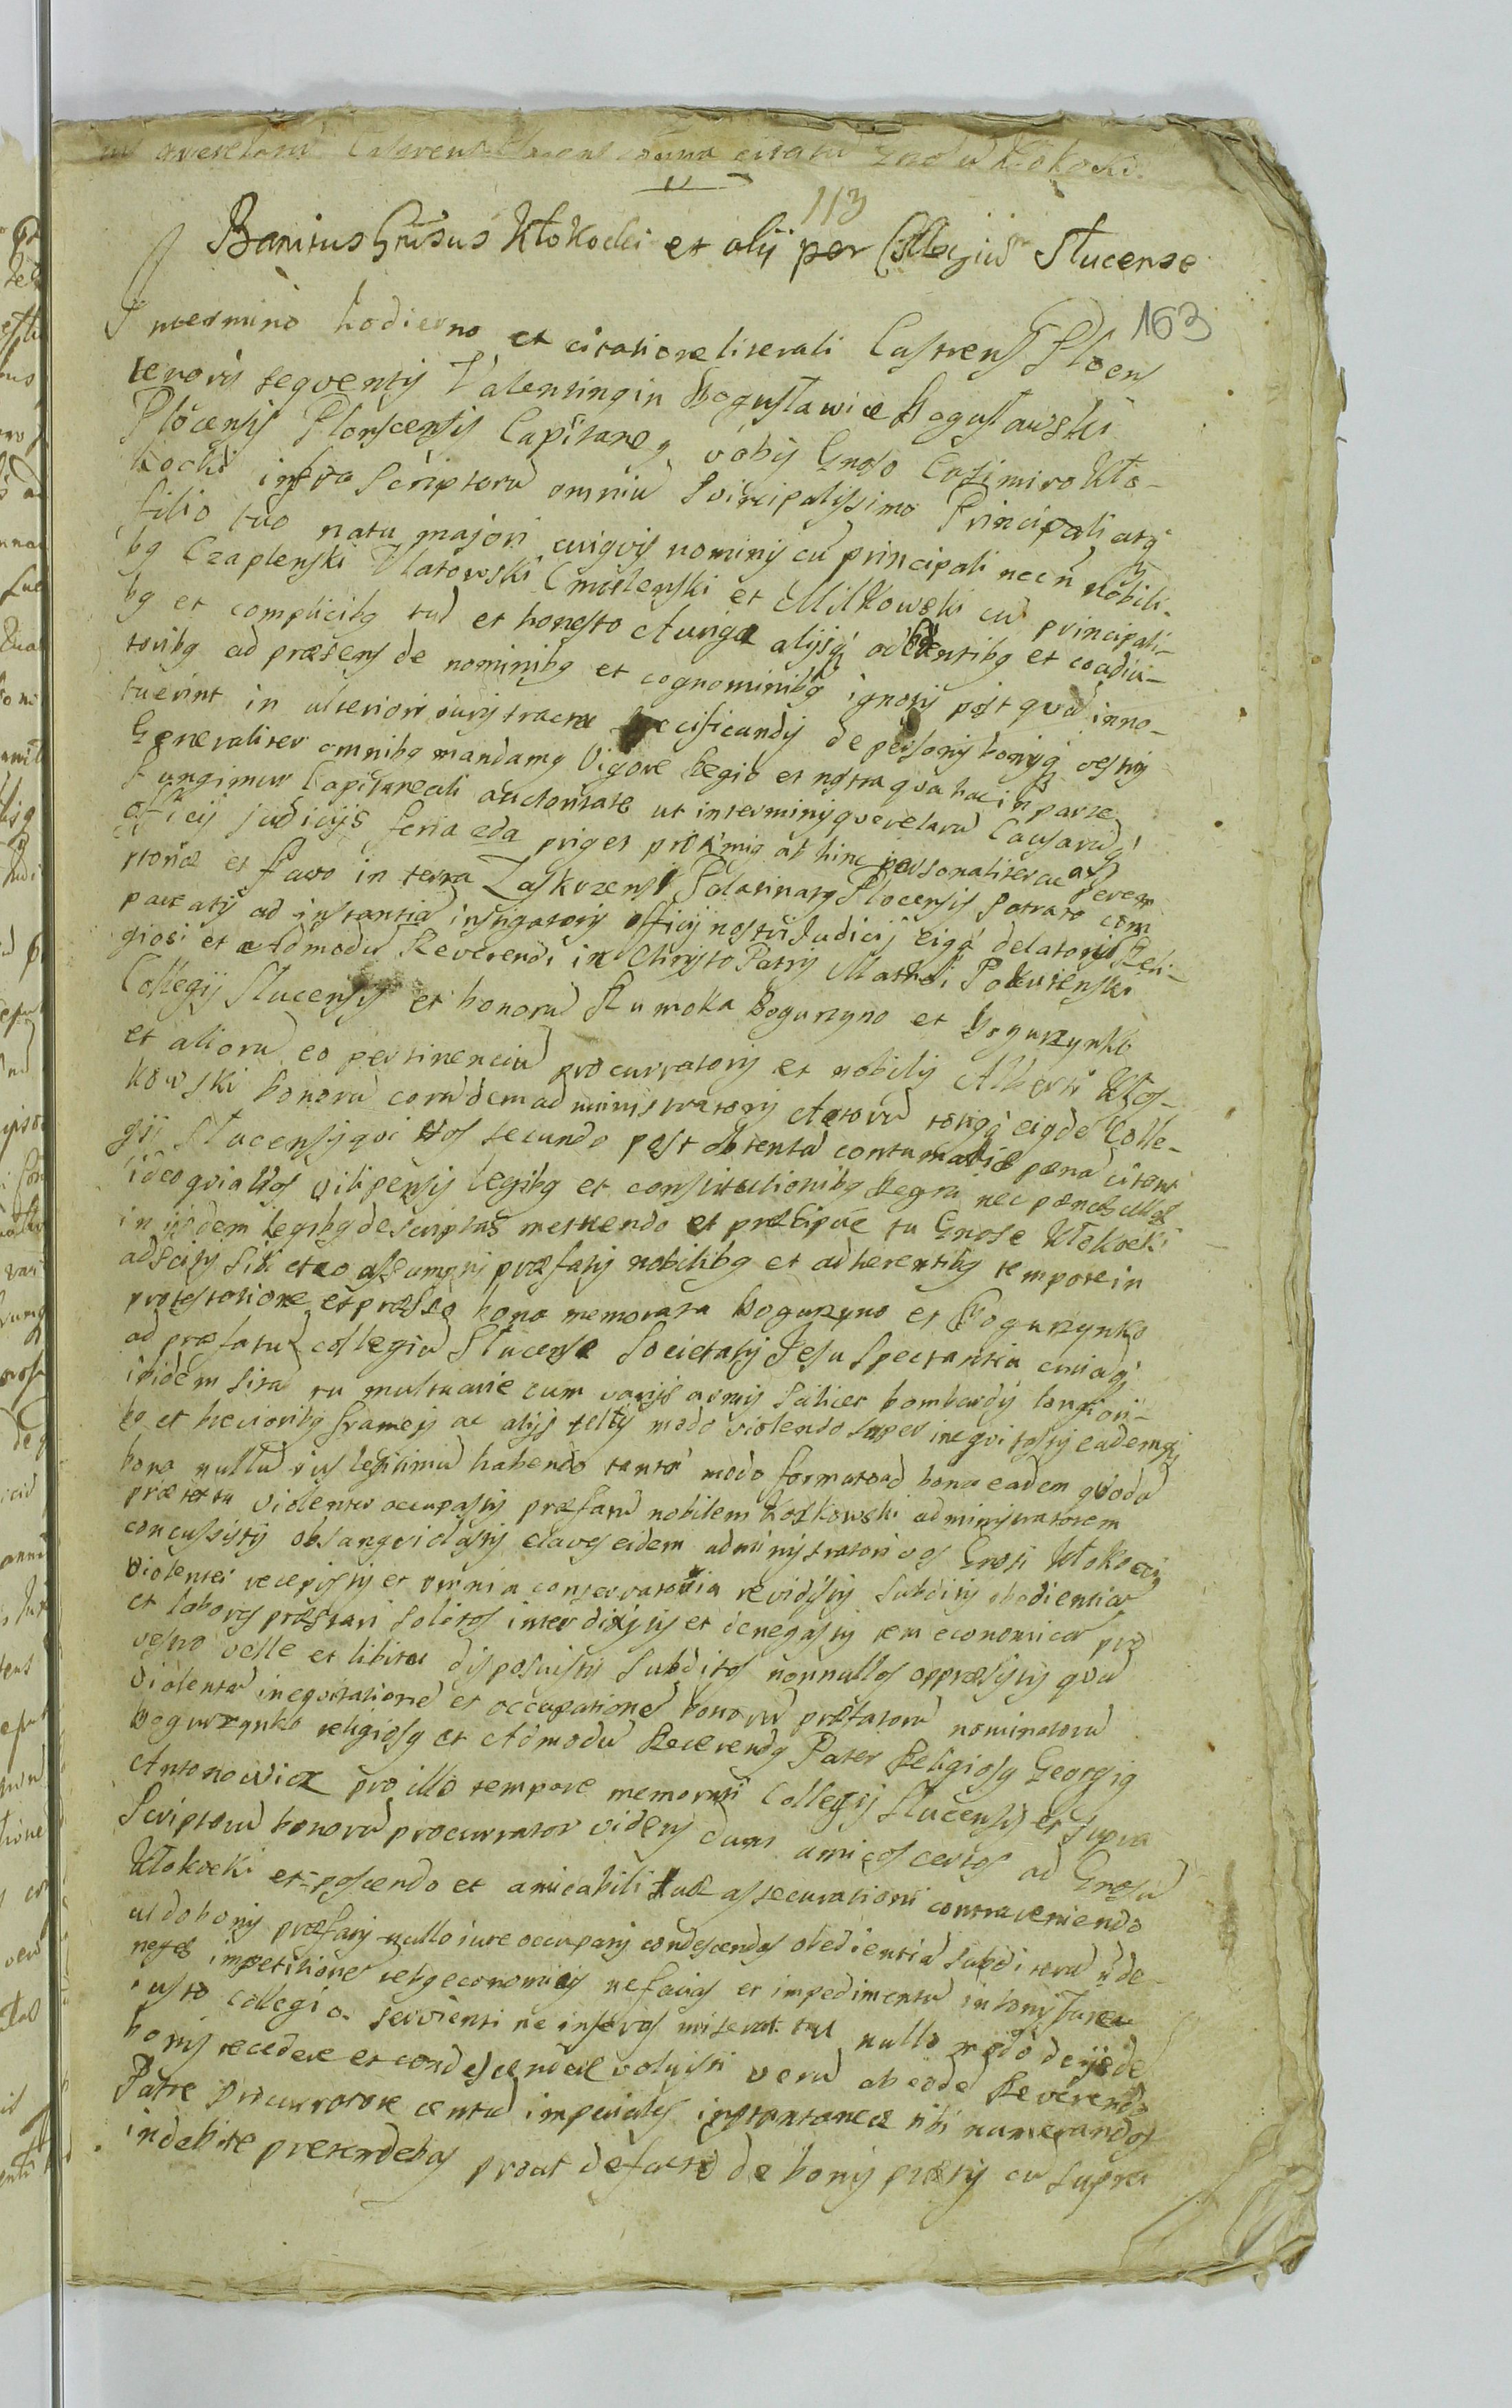 113
Banitus Gnsus Kłokocki et alij per Collegiū Slucense
163
In termino hodierno et citatione literali Castrens Płocen
tenoris sequentis Valentinus in Bogusławice Bogusławski
Plocensis Płonscensis Capitaneus vobis Gnoso Casimiro Kło-
kocki infra scriptorū omniū principalissimo Principali atq
filio tuo natu majori cuiusvis nominis cū principali nec ñ nobili-
bg Czaplenski Zlatowski Cmielenski et Milkowski cū principali-
bg et complicibg tuis et honesto Auriga alijsq adhærentibg et coadiu-
toribg ad præsens de nominibg et cognominibg ignotis post quā inno-
tuerint in ulteriori iuris tractu specificandis de personis bonisq vestris
Generaliter omnibg mandamg Vigore Regio et nostra qua hac in parte
fungimur Capitaneali auctoritate ut in terminis querelarū Causarūq
officij judicijs feria eda prius et proximis ab hinc personaliter ac perem
ptoriæ et facto in terra Zaskrzensi Palatinatg Plocensis patrato com
pareatis ad instantiā instigatoris officij nostri Judicij eigq delatoris Reli-
giosi et admodū Reverendi in Christo Patris Mathæi Pokurenski
Collegij Slucensis et bonorū Rumoka Bogurzyno et Bogurzynko
et aliorū eo pertinenciū procurratoris et nobilis Alberti Kos-
kowski bonorū eorūdem administratoris Actorū totigq eigdē Colle-
gij Slucensis qui Vos secundo post obtentā contumaciæ pænā citant
ideo quia Vos vilipensis legibg et constitutionibg Regni nec pænas illas
in ijsdem legibg descriptas metuendo et præcipue tu Gnose Kłokocki
adscitis sibi et eo assumptis præfatis nobilibg et adherentibg tempore in
protestatione expresso bona memorata Bogurzyno et Bogurzynko
ad præfatū collegiū Slucense Societatis Jesu spectantia curiāq
ibidem sitā tu multuarie cum varijs armis scilicet bombardis longiori-
bg et brevioribg frameis ac alijs telis modo violendo super inequitastis eademq
bona nullū ius legitimū habendo tantū modo formato ad bona eadem quodā
prætextu violenter occupastis præfatū nobilem Koskowski administratorem
concussistis obsanguidastis claves eidem administratori vos Gnosi Kłokocij
violenter recepistis et omnia conservatoria revidistis subditis obedientiā
et labores præstari solitos interdixistis et denegastis rem economicā pro
vestro velle et libitu disposuistis subditos nonnullos oppræssistis quā
violentā inequitationē et occupationē bonorū præfatorū nominatorū
Bogurzynko religiosg et Admodū Reverendg Pater Religiosg Georgig
Antonowicz pro illo tempore memorati Collegij Slucensis et supra
Scriptorū bonorū procurrator videns dum amicos certos ad Gnosū
Kłokocki et poscendo et amicabili tuæ assecurationi contraveniendo
ut do bonis præfatis nullo iure occupatis condescendas obedientiā subditorū ñ de-
neges impetitiones rebg economicis ne facias et impedimentū in bonis Jure
iusto colegio servienti ne inferas miserat tu nullo modo de ijsdē
bonis recedere et condescendere voluisti verū ab eodē Reverendo
Patre procurratore centū imperiales instantaneæ tibi numerandos
indebite prætendebas prout de facto de bonis prætis cū supra